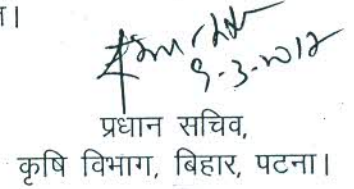 9-3-2012
प्रधान सचिव,
कृषि विभाग, बिहार, पटना।